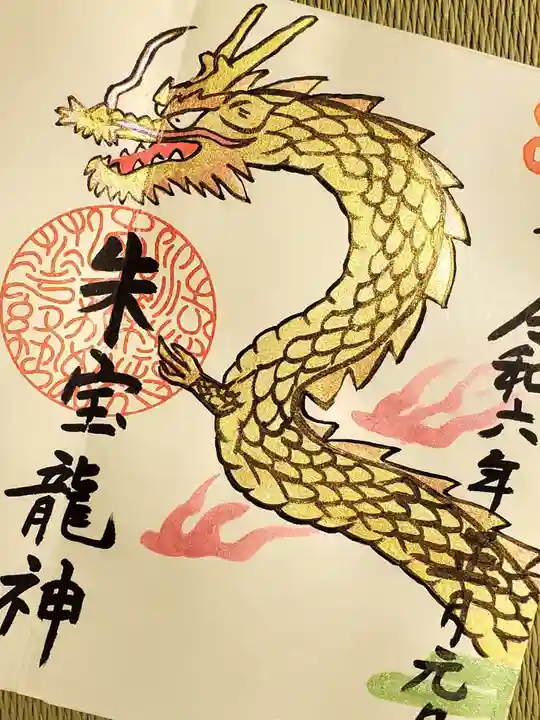 令和六年正月元
朱宝龍神